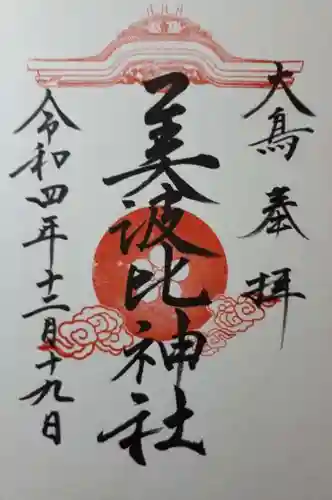 大鳥 奉拝
美波比神社
令和四年十二月十九日